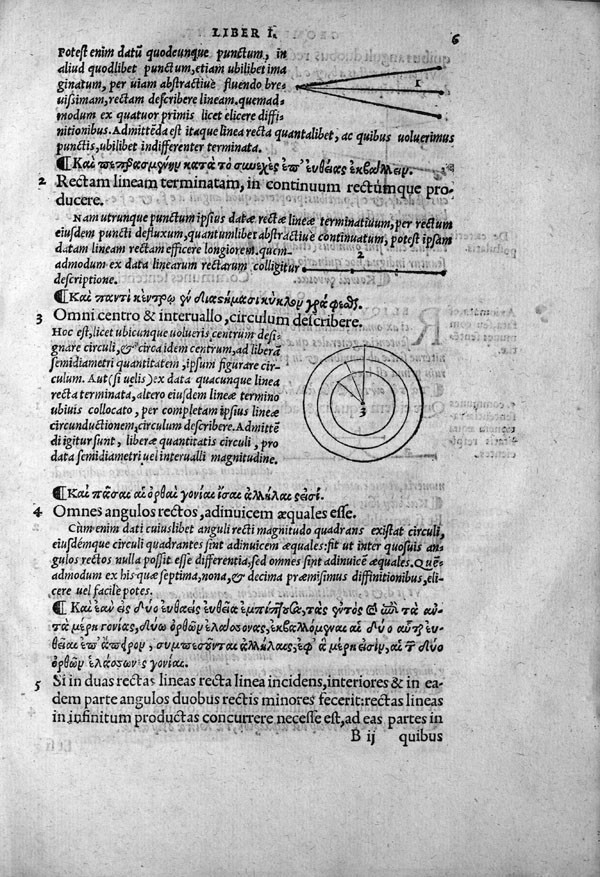 LIBER I.
6
Potest enim datũ quodcunque punctum, in
aliud quodlibet punctum, etiam ubilibet ima
ginatum, per uiam abstractiuè fluendo bre-
uissimam, rectam describere lineam. quemad-
modum ex quatuor primis licet elicere diffi-
nitionibus. Admittẽda est itaque linea recta quantalibet, ac quibus uoluerimus
punctis, ubilibet indifferenter terminata.
1
¶Καὶ πεπερασμένην κατὰ τὸ συνεχὲς ἐπ' ἐυθείας ἐκβάλλειν.
2 Rectam lineam terminatam, in continuum rectumque pro-
ducere.
Nam utrunque punctum ipsius datæ rectæ lineæ terminatiuum, per rectum
eiusdem puncti defluxum, quantumlibet abstractiuè continuatum, potest ipsam
datam lineam rectam efficere longiorem. quem-
admodum ex data linearum rectarum colligitur
descriptione.
2
¶Καὶ παντὶ κέντρῳ καὶ διαστήματι κύκλον γράφεσθαι.
3 Omni centro & interuallo, circulum describere.
Hoc est, licet ubicunque uolueris centrum desi-
gnare circuli, & circa idem centrum, ad liberã
semidiametri quantitatem, ipsum figurare cir-
culum. Aut (si uelis) ex data quacunque linea
recta terminata, altero eiusdem lineæ termino
ubiuis collocato, per completam ipsius lineæ
circunductionem, circulum describere. Admittẽ
di igitur sunt, liberæ quantitatis circuli, pro
data semidiametri uel interualli magnitudine.
3
¶Καὶ πᾶσαι αἱ ὀρθαὶ γονίαι ἴσαι ἀλλήλαις εἰσί.
4 Omnes angulos rectos, adinuicem æquales esse.
Cùm enim dati cuiuslibet anguli recti magnitudo quadrans existat circuli,
eiusdémque circuli quadrantes sint adinuicem æquales: fit ut inter quosuis an-
gulos rectos nulla possit esse differentia, sed omnes sint adinuicẽ æquales. Quẽ-
admodum ex his quæ septima, nona, & decima præmisimus diffinitionibus, eli-
cere uel facile potes.
¶Καὶ ἐὰν εἰς δύο ἐυθείας ἐυθεῖα ἐμπίπτουσα, τὰς ἐντὸς καὶ ἐπὶ τὰ αὐ-
τὰ μέρη γονίας, δύω ὀρθῶν ἐλάσσονας, ἐκβαλλόμεναι αἱ δύο αὗται ἐυ-
θεῖαι ἐπ' ἄπειρον, συμπεσοῦνται ἀλλήλαις, ἐφ' ἃ μέρη εἰσὶν, αἱ τῶν δύο
ὀρθῶν ἐλάσσονες γονίαι.
5 Si in duas rectas lineas recta linea incidens, interiores & in ea-
dem parte angulos duobus rectis minores fecerit: rectas lineas
in infinitum productas concurrere necesse est, ad eas partes in
B ij quibus